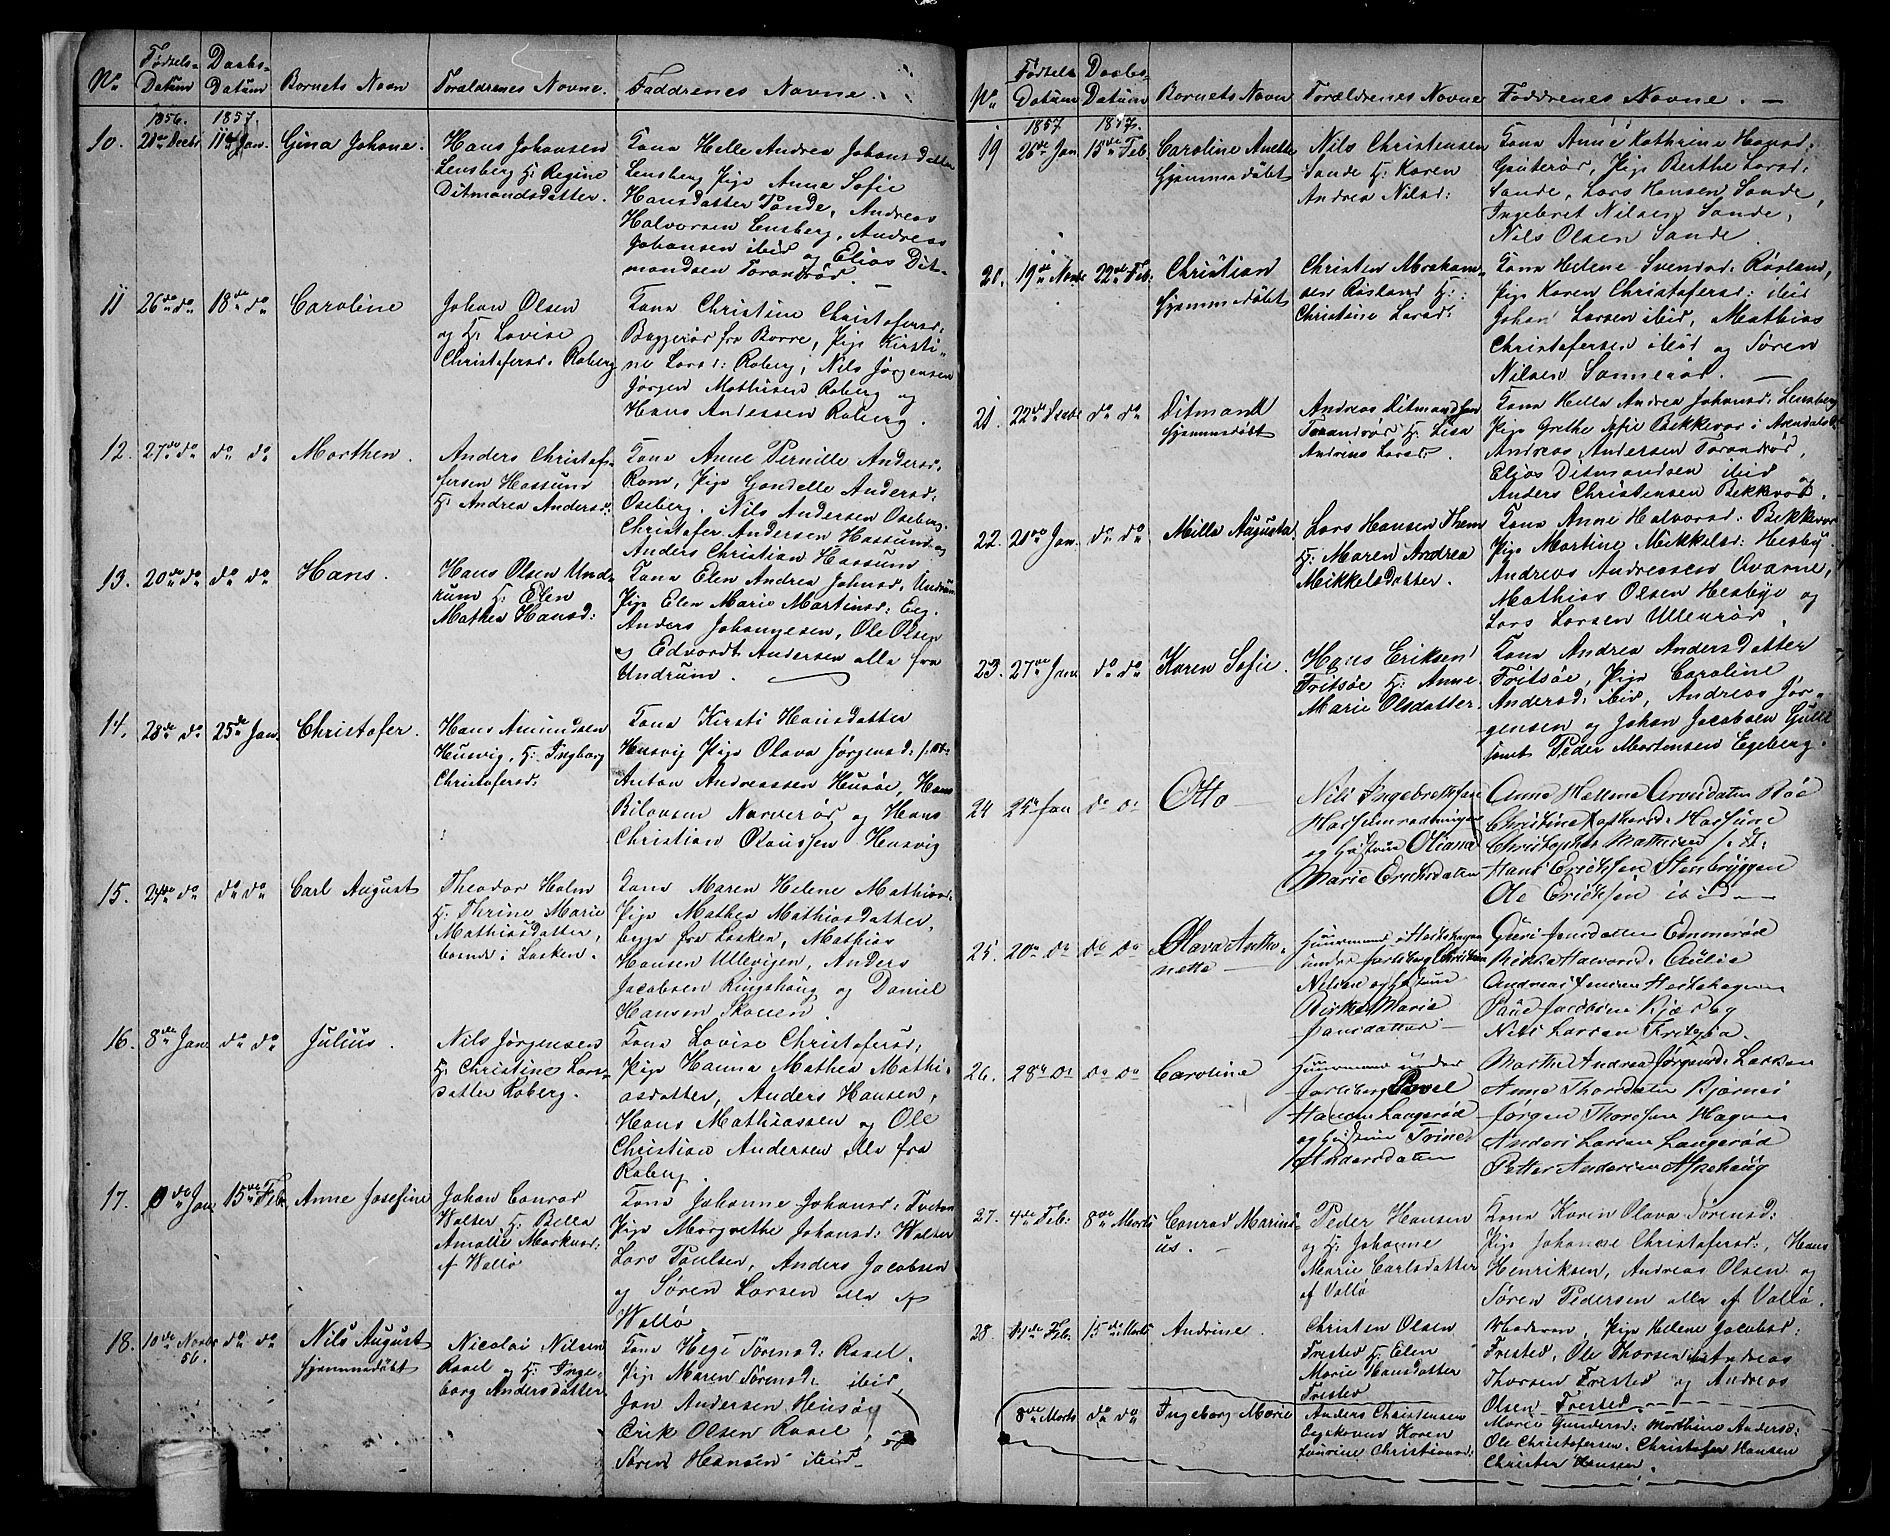 No Fødsels- Datum Daabs- Datum Bornets Navn Forældrenes Navne. Faddrenes Navne.
1856. 1857.
10. 11te Jan. Gina Johane.
Hans Johansen
Lensberg H: Regine
Ditmandsdatter.
Kona Helle Andrea Johansdatter
Lensberg Pige Anne Sofie
Hansdatter Tande, Andreas
Halvorsen Lensberg, Andreas
Johansen ibid og Elias Dit-
mandsen Torandrød.
11 26de do 18de do Caroline
Johan Olsen
og H: Lovise
Christofersd. Roberg
Kona Christine Christofersd:
Byggerør fra Borre, Pige Kirsti-
ne Larsd: Roberg, Nils Jørgensen
Jørgen Mathisen Roberg og
Hans Andersen Roberg.
12. 27de do do do Morthen.
Anders Christof-
fersen Hassum
H: Andrea Andersd:
Kona Anne Pernille Andersd:
Rom, Pige Gondelle Andersd:
Oseberg. Nils Andersen Oseberg.
Christofer Andersen Hassum og
Anders Christian Hassum
13. 20de do do do Hans.
Hans Olsen Und-
rum H: Elen
Mathea Hansd:
Kona Elen Andrea Johnsd: Undrum
Pige Elen Marie Martinsd: Eeg.
Anders Johannesen, Ole Olsen
og Edvardt Andersen alle fra
Undrum.
14. 28de do 25de Jan. Christofer.
Hans Amundsen
Husvig, H: Ingborg
Christofersd:
Kona Kirsti Hansdatter
Husvig Pige Olava Jørgensd:
Anton Andreassen Husøe, Hans
Bilovsen Narverør og Hans
Christian Olaussen Husvig
15. 24de do do do Carl August
Theodor Holm
H: Thrine Marie
Mathiasdatter,
boende i Lasken.
Kona Maren Helene Mathiasd:
Pige Mathea Mathiasdatter,
begge fra Lasken, Mathias
Hansen Ullevigen, Anders
Jacobsen Ringshaug og Daniel
Hansen Skauen.
16. 8de Jan do do Julius.
Nils Jørgensen
H: Christine Lars-
datter Roberg.
Kona Lovise Christofersd:
Pige Hanna Mathea Mathi-
asdatter, Anders Hansen,
Hans Mathiassen og Ole
Christian Andersen alle fra
Roberg.
17. Jan 15de Feb. Anne Josefine
Johan Conrad
Walter H: Bella
Amalie Markusd:
af Wallø
Kona Johanne Johansd:
Pige Margrethe Johansd: Walter
Lars Paulsen, Anders Jacobsen
og Søren Larsen alle af
Wallø.
18. 10de Novbr 56. do do Nils August
hjemmedøbt
Nicolai Nilsen
Rael og H: Inge-
borg Andersdatter
Kona Hege Sørensd: Rael.
Pige Maren Sørensd: ibid,
Jan Andersen Husøy
Erik Olsen Rael, og
Søren Hansen ibid
No Fødsels Datum Daabs- Datum Barnets Navn Forældrenes Navne Faddrenes Navne.
1857 1857.
19 26de Jan 15de Feb Caroline Anette
hjemmedøbt
Nils Christensen
Sande H: Karen
Andrea Nilsd:
Kona Anne Kathrine Hansd:
Gauterør, Pige Berthe Larsd:
Sande, Lars Hansen Sande,
Ingebret Nilsen Sande,
Nils Olsen Sande.
20. 19de Novbr 22de Feb. Christian
hjemmedøbt
Christen Abraham-
sen Råsland H:
Christine Larsd:
Kona Helene Svendsd: Råsland,
Pige Karen Christofersd: ibid
Johan Larsen ibid, Mathias
Christofersen ibid og Søren
Nilsen Sannerød.
21 22de Decbr do do Ditmand
hjemmedøbt
Andreas Ditmandsen
Torandrør H: Lisa
Andrea Larsd.
Kona Hella Andrea Johansd: Lensberg
Pige Grethe Sofie Bekkevar i Arendal
Andreas Andersen Torandrør,
Elias Ditmandsen ibid og
Anders Christensen Bekkevar.
22. Jan. do do Milla Augusta.
Lars Hansen Them
H: Maren Andrea
Mikkelsdatter.
Kona Anne Halvorsd: Bekkevar
Pige Martine Mikkelsd: Hesby.
Andreas Andreassen Qvarne,
Mathias Olsen Hesbye og
Lars Larsen Ullerør.
23. 27de Jan do do Karen Sofie.
Hans Eriksen
Fritsøe H: Anne
Marie Olsdatter.
Kona Andrea Andersdatter
Fritsøe, Pige Caroline
Andersd: ibid, Andreas Jør-
gensen og Johan Jacobsen
samt Peder Mortensen Egeberg.
24 25de Jan do do Otto
Nils Ingebretsen
og Hustrue Oliana
Marie Ericksdatter
Anne Hellene Arvesdatter Bøe
Hassum
Christopher Mathisen f. st.
Hans Ericksen Stenbryggen
Ole Ericksen ibid
25. 20de do do do Olava Antho-
nette
Huusmand i Herkehagen
under Jarlsberg Christian
Nilsen og Hustrue
Birthe Marie
Jansdatter
Guri Jensdatter Emmerød
Andreas Jensen Herkehagen
Nils Larsen Fritzøe.
26. 28de do do do Caroline
Huusmand under
Jarlsberg Povel
Hansen Langerød
og Hustrue Trine
Andersdatter
Marthe Andrea Jørgensd: Lasken
Anne Thorsdatter Bjørnes
Jørgen Thoresen Hagen
Anders Larsen Langerød
Petter Andersen Askehaug
27. 4de Feb: 8de Marts Conrad Marin-
us.
Peder Hansen
og H: Johanne
Marie Carlsdatter
af Vallø
Kona Karen Olava Sørensd:
Pige Johanne Christofersd:, Hans
Henriksen, Andreas Olsen og
Søren Pedersen alle af Vallø.
28 Feb. 15de Marts Andrine.
Christen Olsen
Fresteð H: Elen
Marie Hansdatter
Fresteð
Moderen, Pige Helene Jacobsd:
Fresteð, Ole Thorsen ibid Andreas
Thorsen Fresteð og Andreas
Olsen Fresteð.
8de Marts do do Ingeborg Marie
Anders Christensen
Karen
Laurine Christiansd:
Marie Gundersd: Morthine Andersd:
Ole Christofersen. Christofer Hansen
Christen Hansen.